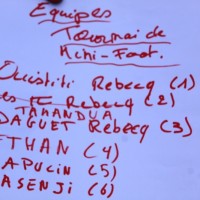 Equipes
Tournoi de
Mini-Foot.
Ouistiti Rebecq (1)
es Rebecq (2)
TAMANDUA
DAGUET Rebecq (3)
THAN (4)
APUCIN (5)
ASENJI (6)